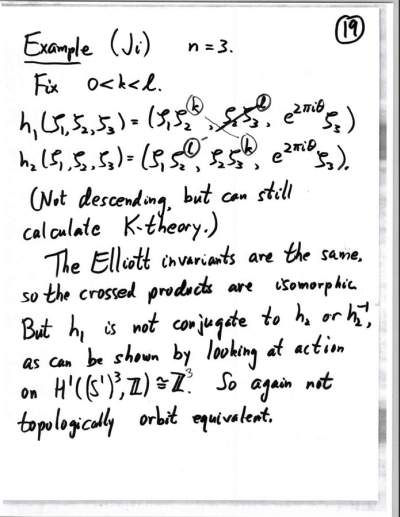 19
Example (Ji) n = 3.
Fix 0<k<l.
h₁(ζ₁,ζ₂,ζ₃) = (ζ₁ζ₂ᵏ, ζ₂ζ₃ˡ, e^{2πiθ}ζ₃)
h₂(ζ₁,ζ₂,ζ₃) = (ζ₁ζ₂ˡ, ζ₂ζ₃ᵏ, e^{2πiθ}ζ₃).
(Not descending, but can still
calculate K-theory.)
The Elliott invariants are the same,
so the crossed products are isomorphic.
But h₁ is not conjugate to h₂ or h₂⁻¹,
as can be shown by looking at action
on H¹((S¹)³, ℤ) ≅ ℤ³. So again not
topologically orbit equivalent.